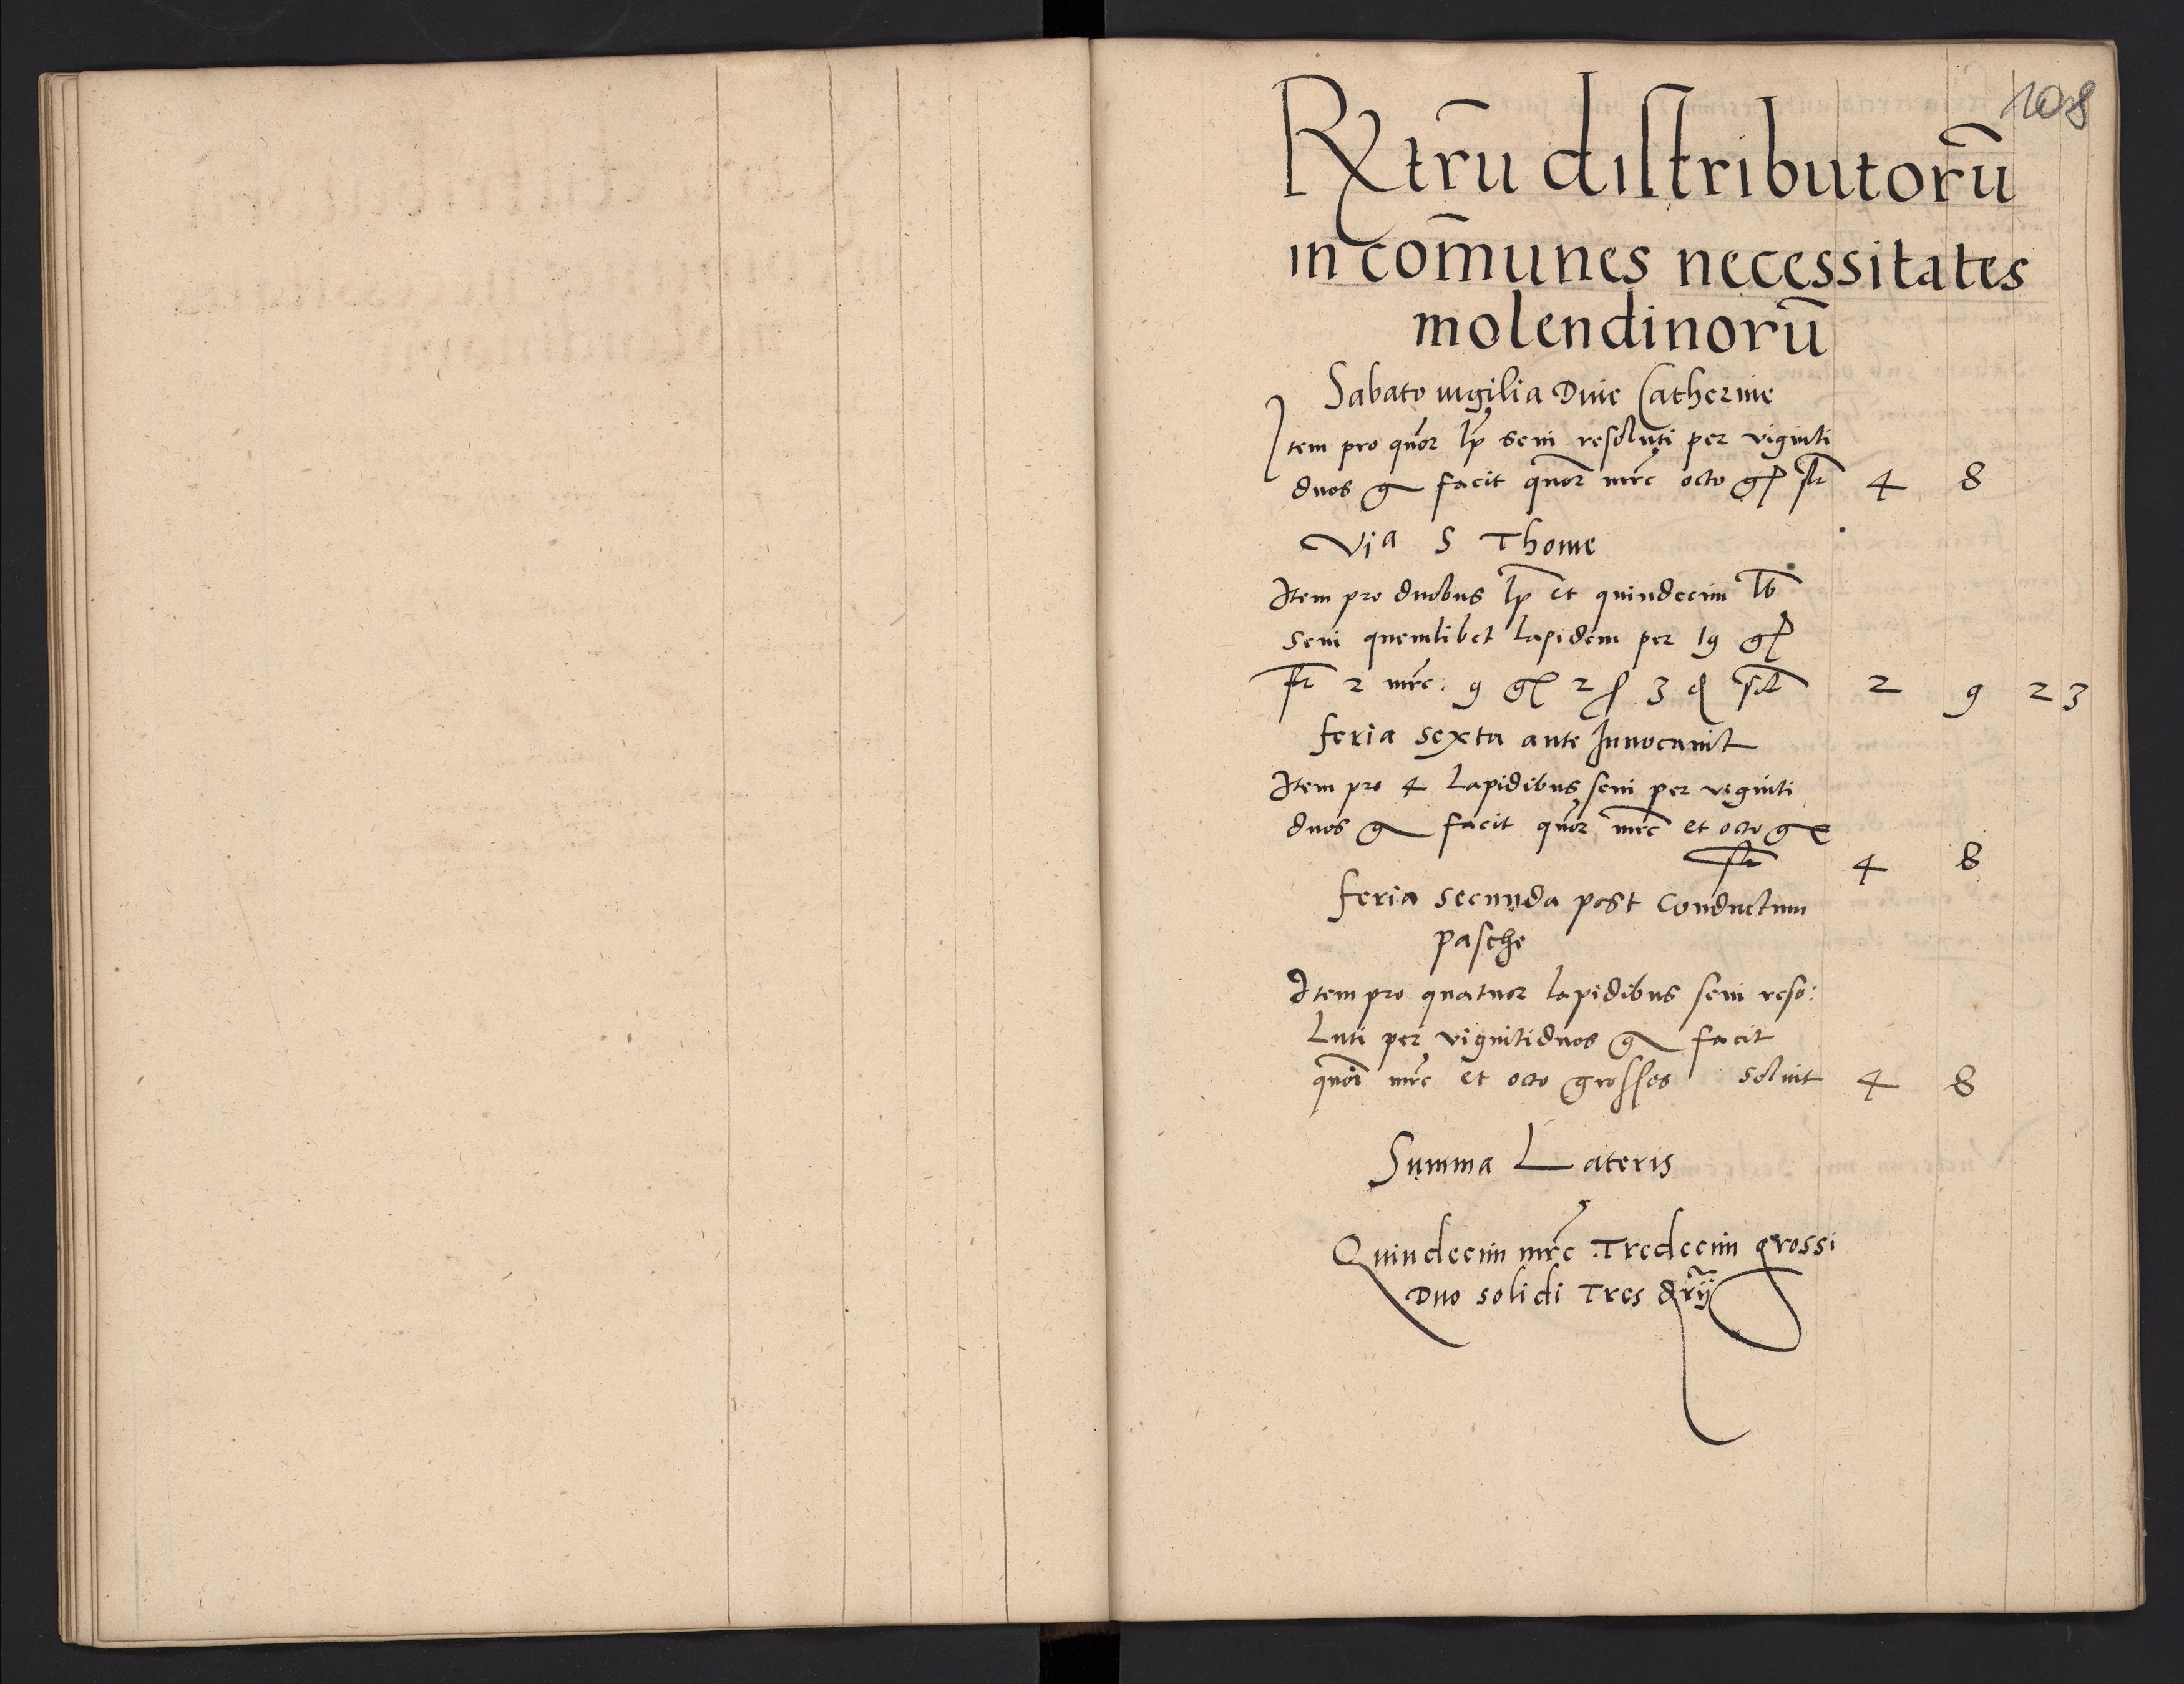 108
Rxtrū distributorū
in com̄unes necessitates
molendinorū
Sabato vigilia Diue Catherine
Item pro quor lp seui resoluti per viginti
duos g facit quor mrc octo g ſt 4 8
Via S Thome
Item pro duobus lp et quindecim lb
seui quemlibet lapidem per 19 g
ſt 2 mrc. 9 g 2 ß 3 d ſt 2 9 2 3
feria sexta ante Inuocauit
Item pro 4 lapidibus seui per viginti
duos g facit quor mrc et octo g
ſt 4 8
feria secunda post Conductum
pasche
Item pro quatuor lapidibus seui reso:
luti per vigintiduos g facit
quor mrc et octo grosses soluit 4 8
Summa Lateris
Quindecim mrc Tredecim grossi
Duo solidi Tres drij